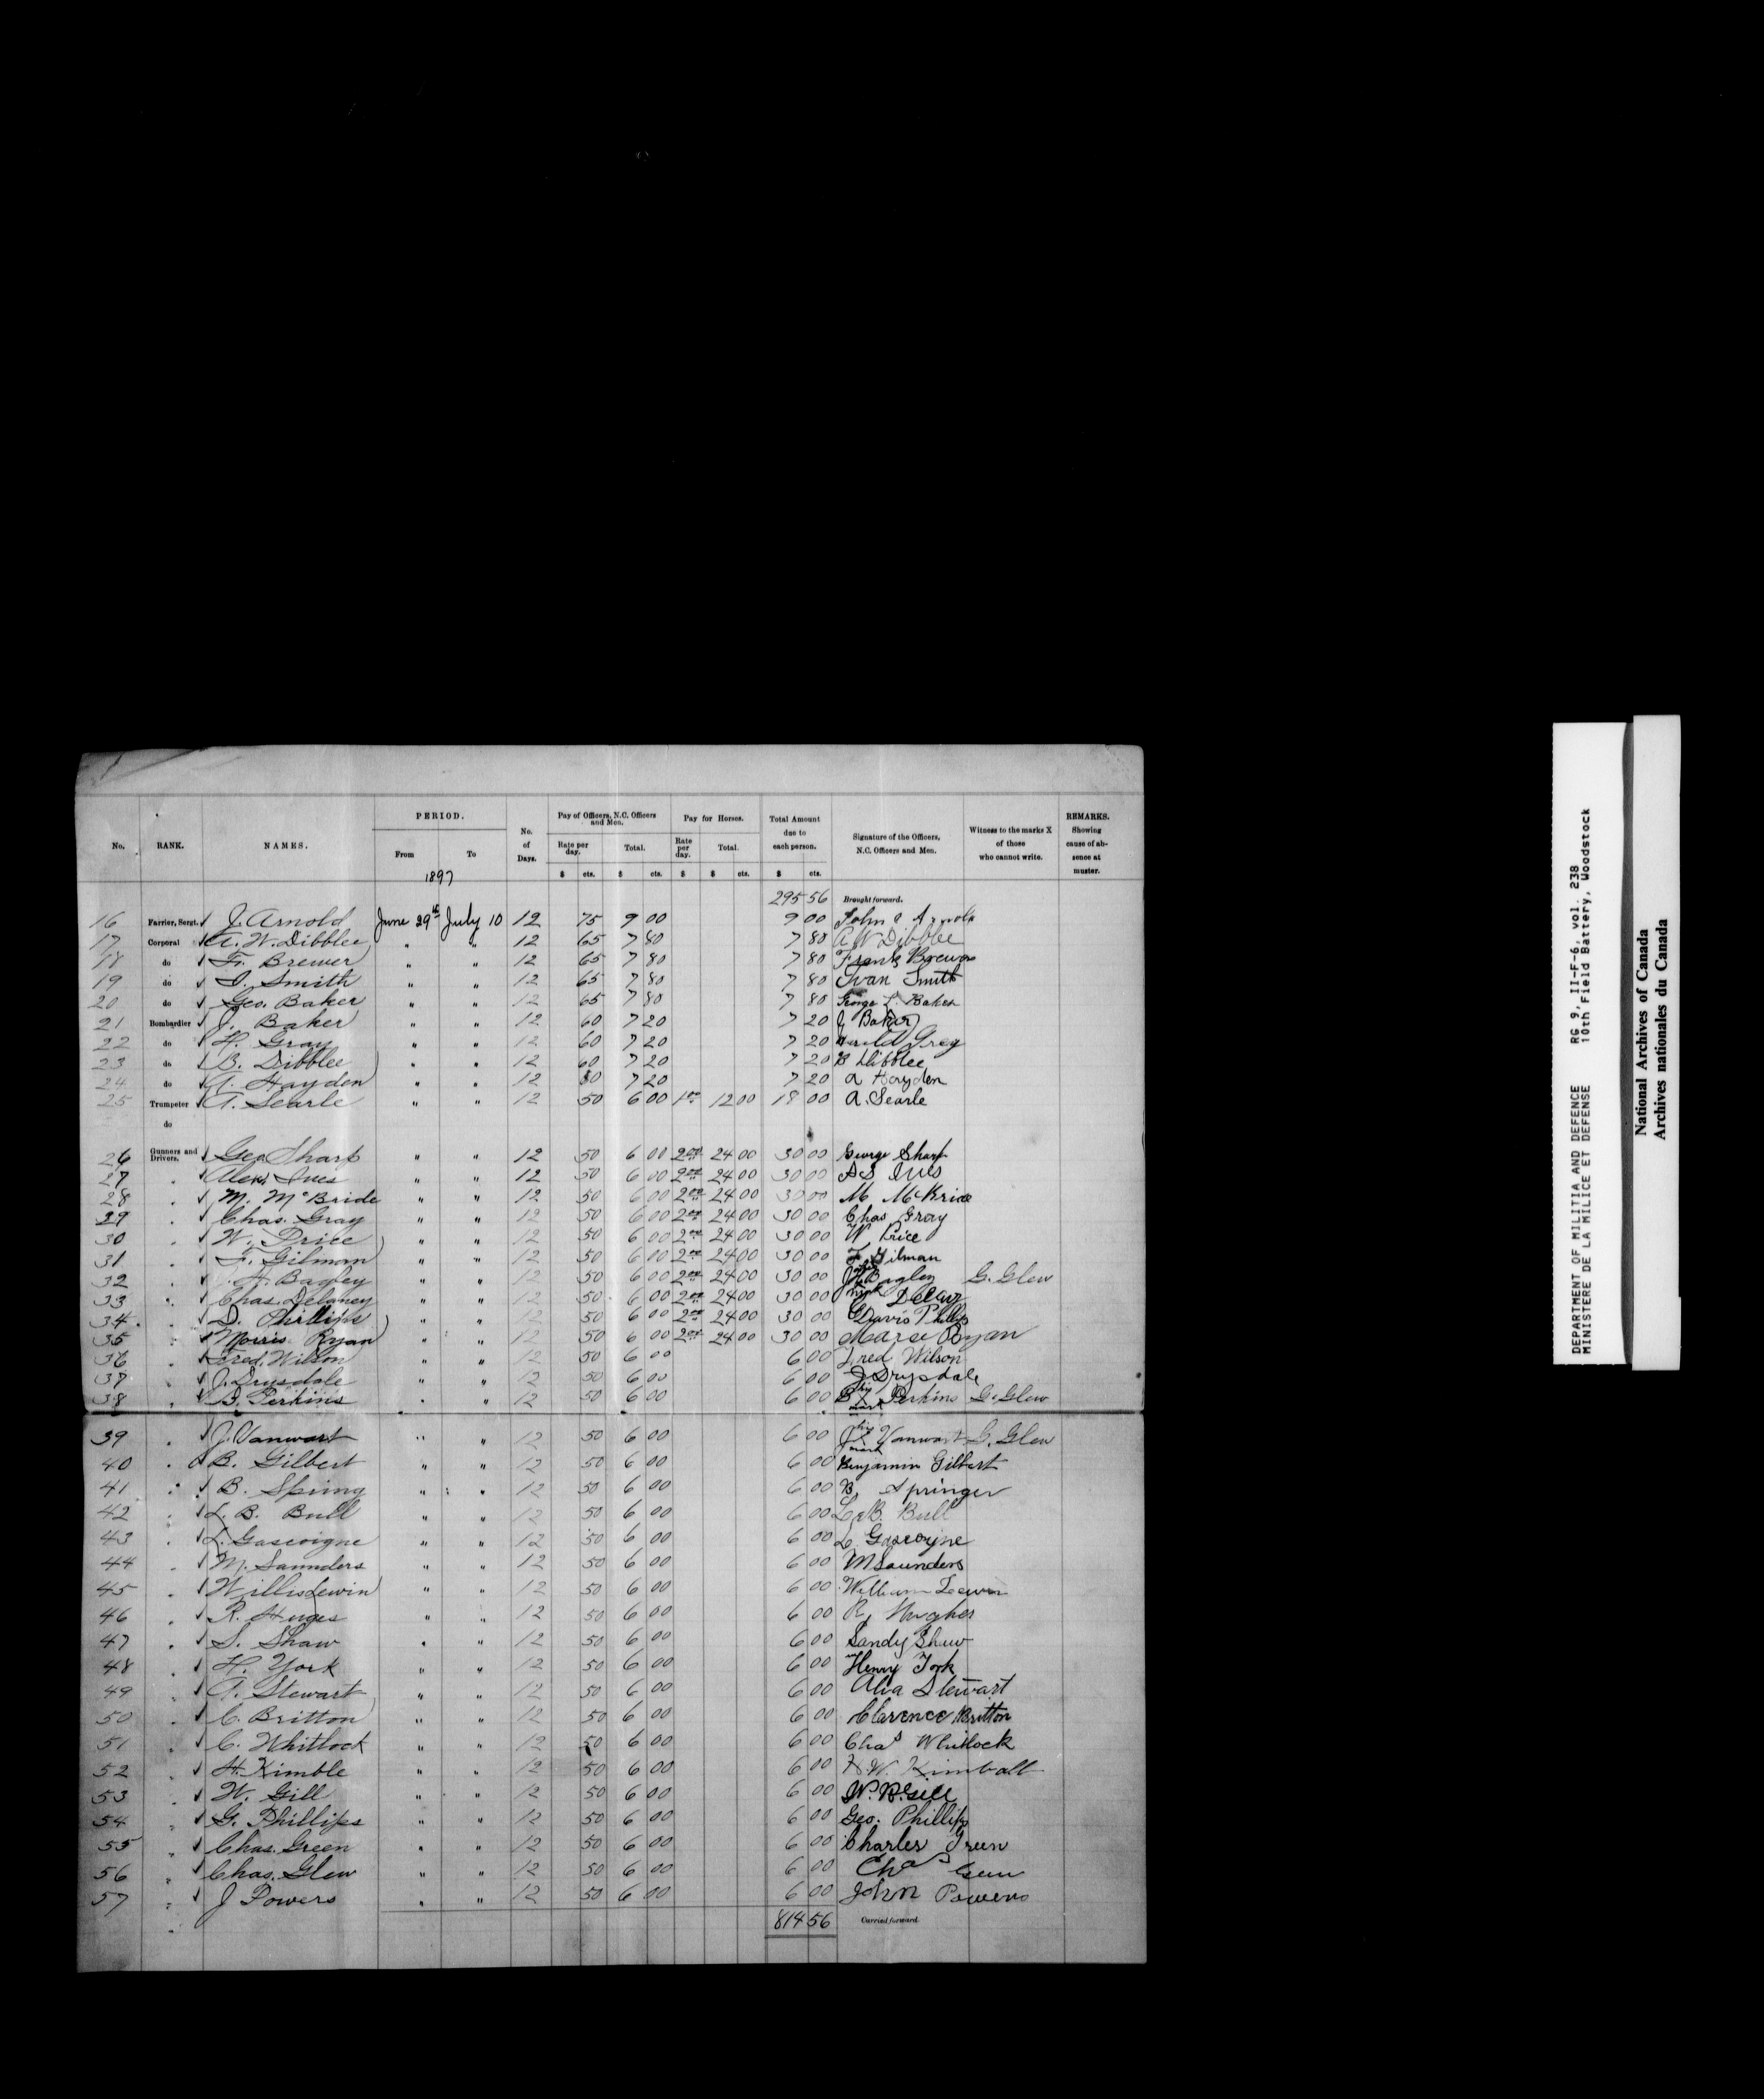 No. RANK. NAMES. PERIOD. From To 1897 No. of Days. Pay of Officers, N.C. Officers and Men. Rate per day. $ cts. Total. $ cts. Pay for Horses. Rate per day. $ Total. $ cts. Total Amount due to each person. $ cts. Signature of the Officers, N.C. Officers and Men. Witness to the marks X of those who cannot write. REMARKS. Showing cause of absence at muster.
295 56 Brought forward.
16 Farrier, Sergt. J. Arnold June 29th July 10 12 75 9 00 9 00 John A Arnold
17 Corporal A. W. Dibblee " " 12 65 7 80 7 80 A W Dibblee
18 do F. Brewer " " 12 65 7 80 7 80 Frank Brewer
19 do I. Smith " " 12 65 7 80 7 80 Ivan Smith
20 do Geo. Baker " " 12 65 7 80 7 80 George L. Baker
21 Bombardier J. Baker " " 12 60 7 20 7 20 J Baker
22 do H. Gray " " 12 60 7 20 7 20 Harold Grey
23 do B. Dibblee " " 12 60 7 20 7 20 B Dibblee
24 do A. Hayden " " 12 60 7 20 7 20 A Hayden
25 Trumpeter A. Searle " " 12 50 6 00 1 00 12 00 18 00 A. Searle
do
26 Gunners and Drivers. Geo Sharp " " 12 50 6 00 2 00 24 00 30 00 George Sharp
27 " Alex Ives " " 12 50 6 00 2 00 24 00 30 00 A S Ives
28 " M. McBride " " 12 50 6 00 2 00 24 00 30 00 M McBride
29 " Chas. Gray " " 12 50 6 00 2 00 24 00 30 00 Chas Gray
30 " W. Price " " 12 50 6 00 2 00 24 00 30 00 W Price
31 " F. Gilman " " 12 50 6 00 2 00 24 00 30 00 F Gilman
32 " H. Bagley " " 12 50 6 00 2 00 24 00 30 00 his X mark Bagley G. Glew
33 " Chas. Delaney " " 12 50 6 00 2 00 24 00 30 00
34 " D. Phillips " " 12 50 6 00 2 00 24 00 30 00 Davis Phillips
35 " Morris Ryan " " 12 50 6 00 2 00 24 00 30 00 Ryan
36 " Fred. Wilson " " 12 50 6 00 6 00 Fred Wilson
37 " J. Drysdale " " 12 50 6 00 6 00 J Drysdale
38 " B. Perkins " " 12 50 6 00 6 00 B his X mark Perkins G. Glew
39 " J. Vanwart " " 12 50 6 00 6 00 J his X mark Vanwart G. Glew
40 " B. Gilbert " " 12 50 6 00 6 00 Benjamin Gilbert
41 " B. Spring " " 12 50 6 00 6 00 B. Springer
42 " L. B. Bull " " 12 50 6 00 6 00 L. B. Bull
43 " L. Gascoigne " " 12 50 6 00 6 00 L Gascoyne
44 " M. Saunders " " 12 50 6 00 6 00 M Saunders
45 " Willis Lewin " " 12 50 6 00 6 00 William Lewin
46 " R. Huges " " 12 50 6 00 6 00 R. Hughes
47 " S. Shaw " " 12 50 6 00 6 00 Sandy Shaw
48 " H. York " " 12 50 6 00 6 00 Henry York
49 " A. Stewart " " 12 50 6 00 6 00 Alva Stewart
50 " C. Britton " " 12 50 6 00 6 00 Clarence Britton
51 " C. Whitlock " " 12 50 6 00 6 00 Chas Whitlock
52 " H. Kimble " " 12 50 6 00 6 00 H. W. Kimball
53 " W. Gill " " 12 50 6 00 6 00 W. R. Gill
54 " G. Phillips " " 12 50 6 00 6 00 Geo. Phillips
55 " Chas. Green " " 12 50 6 00 6 00 Charles Green
56 " Chas. Glew " " 12 50 6 00 6 00 Chas Glew
57 " J Powers " " 12 50 6 00 6 00 John Powers
814 56 Carried forward.
DEPARTMENT OF MILITIA AND DEFENCE RG 9, II-F-6, vol. 238
MINISTERE DE LA MILICE ET DEFENSE 10th Field Battery, Woodstock
National Archives of Canada
Archives nationales du Canada